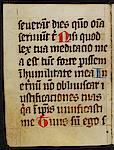 seuerat dies qm oīa
seruiunt t̄ Nisi quod
lex tua meditatio me
a est tūc forte pissem
ī humilitate mea In
eternū nō obliuiscar i
ustificationes tuas
qa ī ipīs uiuificasti
me Tuus sū ego s